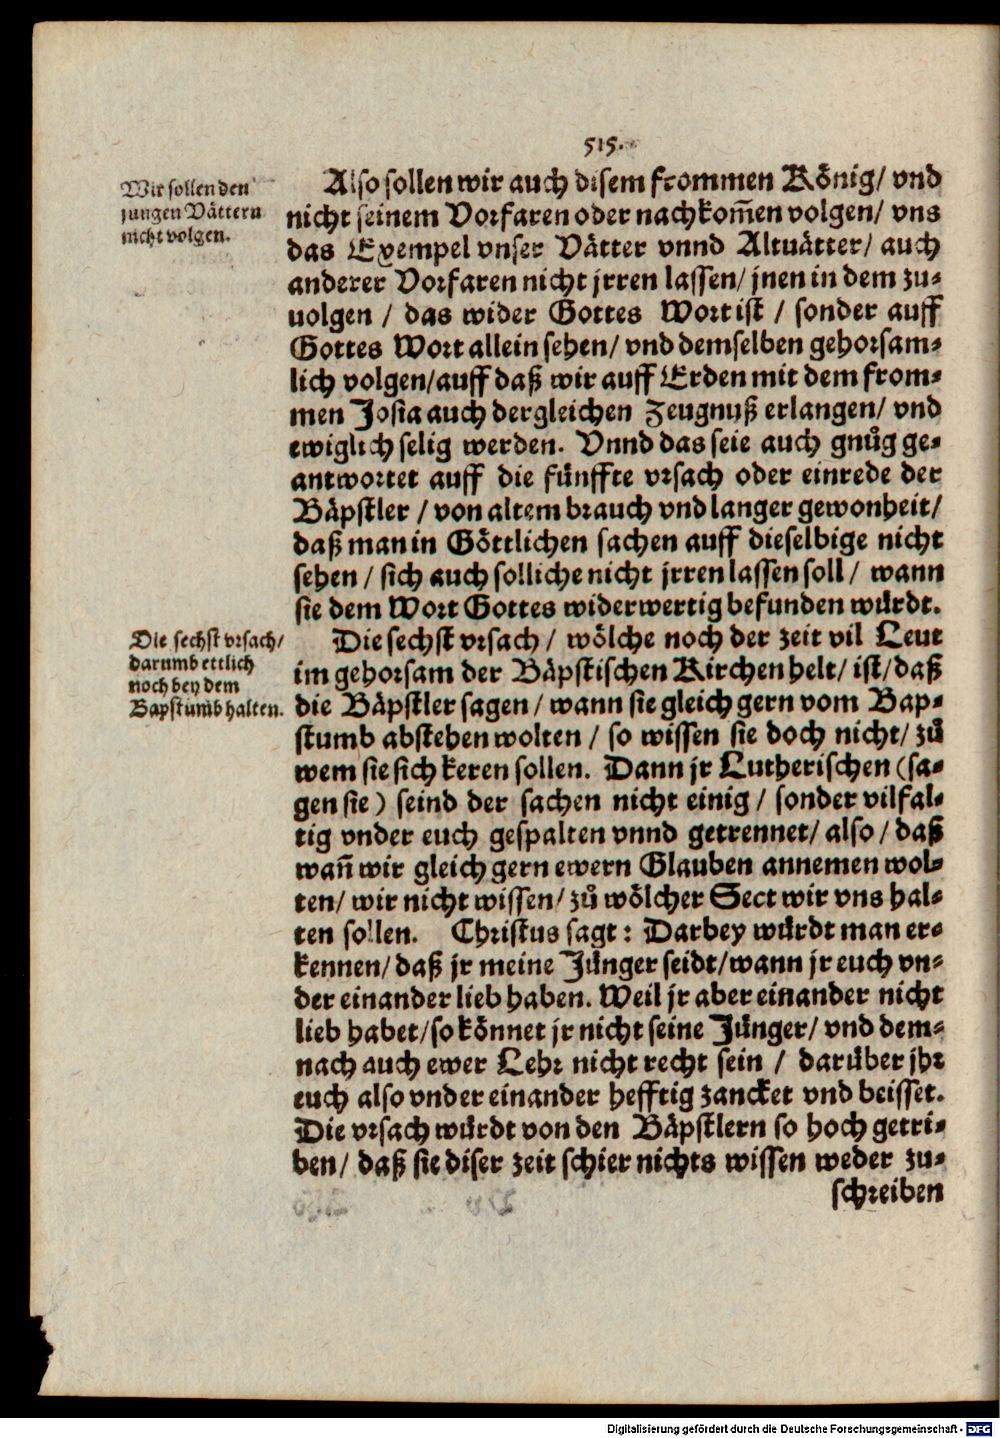 515.
Wir sollen den
jungen Vättern
nicht volgen.
Also sollen wir auch disem frommen König/ vnd
nicht seinem Vorfaren oder nachkom̃en volgen/ vns
das Exempel vnser Vätter vnnd Altuätter/ auch
anderer Vorfaren nicht jrren lassen/ jnen in dem zu-
uolgen / das wider Gottes Wort ist / sonder auff
Gottes Wort allein sehen/ vnd demselben gehorsam-
lich volgen/ auff daß wir auff Erden mit dem from-
men Josia auch dergleichen Zeugnuß erlangen/ vnd
ewiglich selig werden. Vnnd das seie auch gnůg ge-
antwortet auff die fünffte vrsach oder einrede der
Bäpstler / von altem brauch vnd langer gewonheit/
daß man in Göttlichen sachen auff dieselbige nicht
sehen / sich auch solliche nicht jrren lassen soll / wann
sie dem Wort Gottes widerwertig befunden würdt.
Die sechst vrsach/
darumb ettlich
noch bey dem
Bapstumb halten.
Die sechst vrsach / wölche noch der zeit vil Leut
im gehorsam der Bäpstischen Kirchen helt/ ist/ daß
die Bäpstler sagen / wann sie gleich gern vom Bap-
stumb abstehen wolten / so wissen sie doch nicht/ zů
wem sie sich keren sollen. Dann jr Lutherischen (sa-
gen sie) seind der sachen nicht einig / sonder vilfal-
tig vnder euch gespalten vnnd getrennet/ also / daß
wañ wir gleich gern ewern Glauben annemen wol-
ten/ wir nicht wissen/ zů wölcher Sect wir vns hal-
ten sollen. Christus sagt : Darbey würdt man er-
kennen/ daß jr meine Jünger seidt/ wann jr euch vn-
der einander lieb haben. Weil jr aber einander nicht
lieb habet/ so könnet jr nicht seine Jünger/ vnd dem-
nach auch ewer Lehr nicht recht sein / darüber jhr
euch also vnder einander hefftig zancket vnd beisset.
Die vrsach würdt von den Bäpstlern so hoch getri-
ben/ daß sie diser zeit schier nichts wissen weder zu-
schreiben
Digitalisierung gefördert durch die Deutsche Forschungsgemeinschaft - DFG